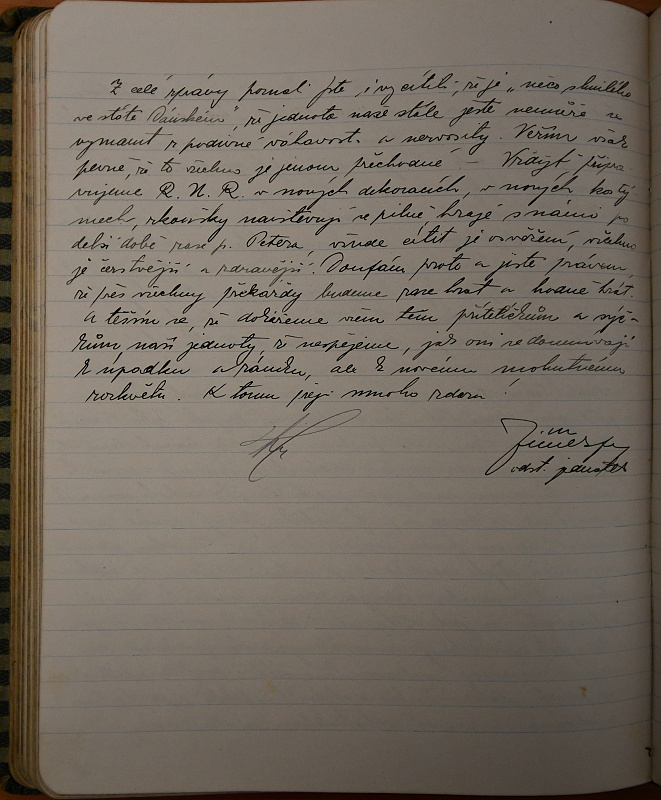 Z celé zprávy poznali jste, i vycítili, že je „něco shnilého
ve státě Dánském", že jednota naše stále ještě nemůže se
vymanit z podivné váhavosti a nervosity. Věřím však
pevně, že to všechno je jenom přechodné – Vždyť připra-
vujeme R. N. R. v nových dekoracích, v nových kostý
mech, zkoušky navštěvují se pilně hraje s námi po
delší době zase p. Petera, všude cítit je osvěžení, všechno
je čerstvější a zdravější. Doufám proto a jistě právem,
že přes všechny překážky budeme zase hrát a hodně hrát.
A těším se, že dokážeme všem těm přítelíčkům a sýč-
kům naší jednoty že nespějeme, jak oni se domnívají
k úpadku a zániku, ale k novému mohutnému
rozkvětu. K tomu jí přeji mnoho zdaru!
odst. jednatel